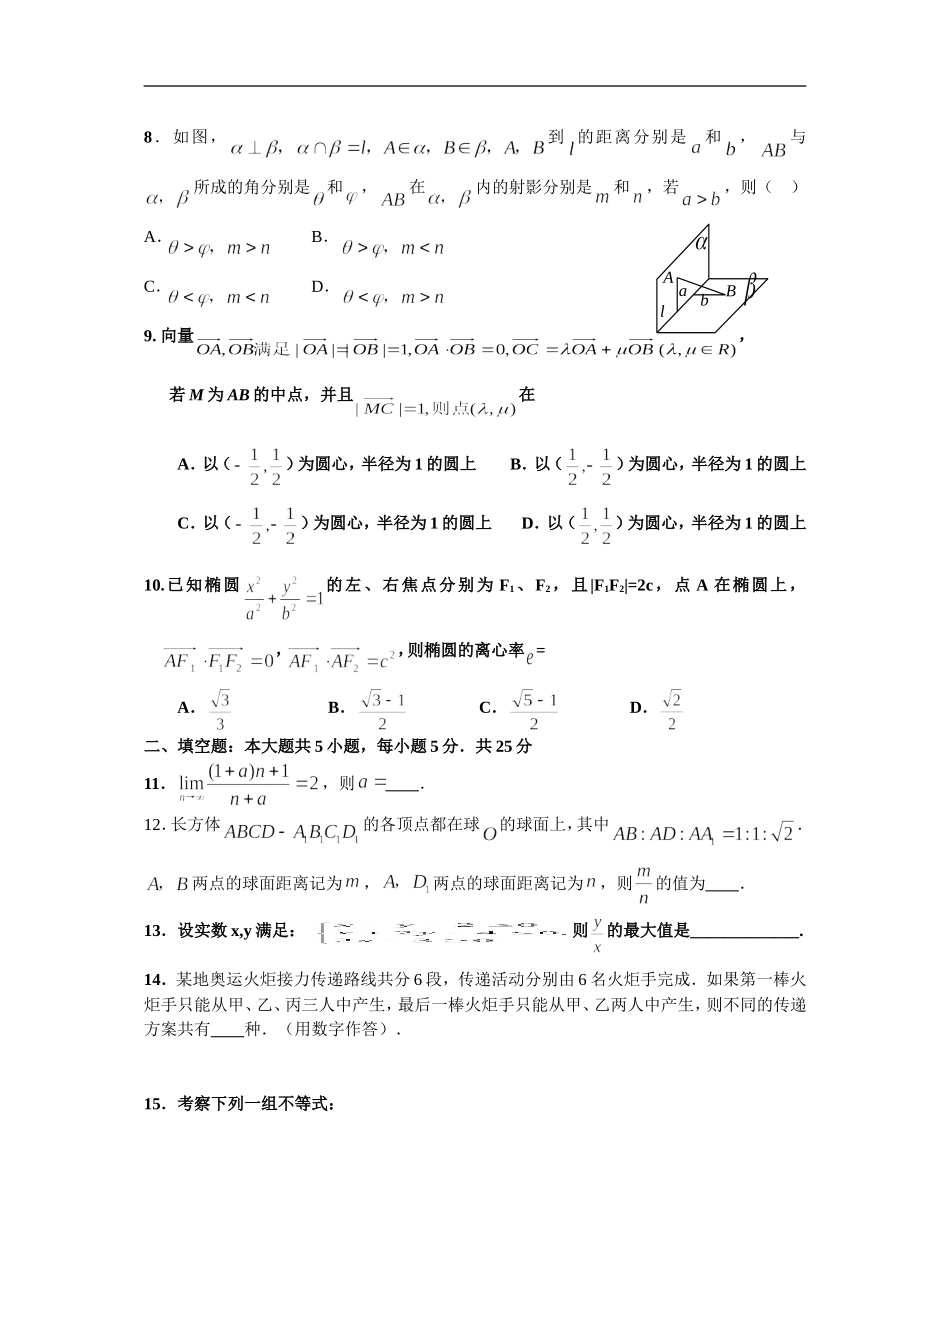 8．如图，α⊥β，α∩β=l，A∈α，B∈β，A，B到l的距离分别是a和b，AB与
α，β所成的角分别是θ和φ，AB在α，β内的射影分别是m和n，若a>b，则（ ）
A．θ>φ，m>n B．θ>φ，m<n
C．θ<φ，m<n D．θ<φ，m>n
α
A
a
b
B
β
l
9.向量OA,OB满足|OA|=|OB|=1,OA·OB=0,OC=λOA+μOB(λ,μ∈R)，
若M为AB的中点，并且|MC|=1,则点(λ,μ)在
A．以（-1/2,1/2）为圆心，半径为1的圆上 B．以（1/2,-1/2）为圆心，半径为1的圆上
C．以（-1/2,-1/2）为圆心，半径为1的圆上 D．以（1/2,1/2）为圆心，半径为1的圆上
10.已知椭圆x²/a²+y²/b²=1的左、右焦点分别为F₁、F₂，且|F₁F₂|=2c，点A在椭圆上，
AF₁·F₁F₂=0，AF₁·AF₂=c²，则椭圆的离心率e=
A．√3/3 B．(√3-1)/2 C．(√5-1)/2 D．√2/2
二、填空题：本大题共5小题，每小题5分．共25分
11．lim n→∞ ((1+a)n+1)/(n+a)=2，则a=____．
12.长方体ABCD-A₁B₁C₁D₁的各顶点都在球O的球面上，其中AB:AD:AA₁=1:1:√2．
A，B两点的球面距离记为m，A，D₁两点的球面距离记为n，则m/n的值为____．
13．设实数x,y满足： 则y/x的最大值是_____________.
14．某地奥运火炬接力传递路线共分6段，传递活动分别由6名火炬手完成．如果第一棒火
炬手只能从甲、乙、丙三人中产生，最后一棒火炬手只能从甲、乙两人中产生，则不同的传递
方案共有____种．（用数字作答）．
15．考察下列一组不等式：